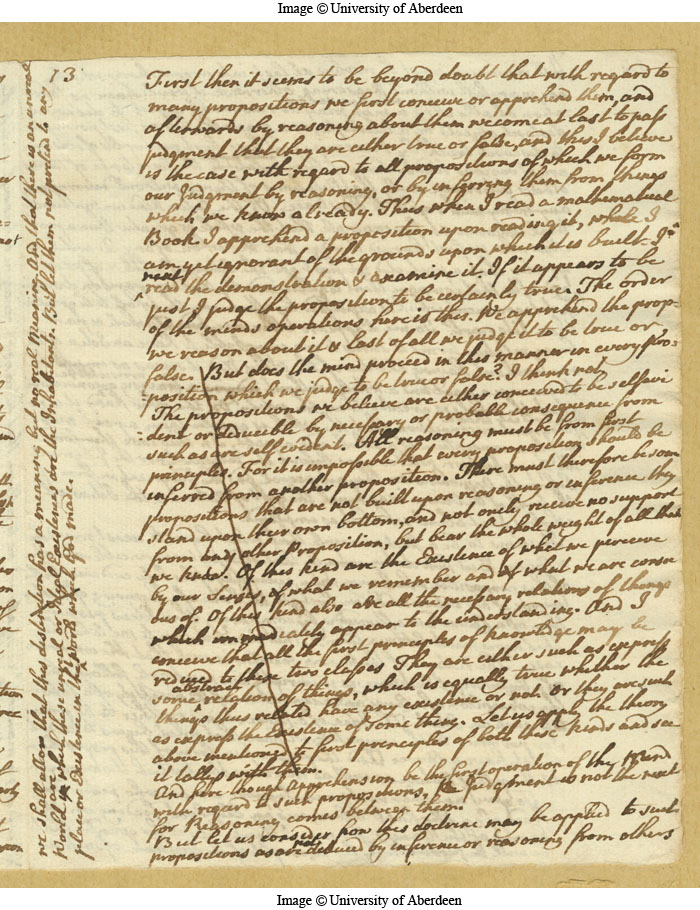 Image © University of Aberdeen
13
First then it seems to be beyond doubt that with regard to
many propositions we first conceive or apprehend them, and
afterwards by reasoning about them we come at last to pass
judgment that they are either true or false, and this I believe
is the case with regard to all propositions of which we form
our Judgment by reasoning, or by inferring them from things
which we know already. Thus when I read a mathematical
Book I apprehend a proposition upon reading it, while I
am yet ignorant of the grounds upon which it is built. I
next
read the demonstration & examine it. If it appears to be
just I judge the proposition to be certainly true. The order
of the minds operations here is this. We apprehend the prop-
we reason about it & last of all we judge it to be true or
false. But does the mind proceed in this manner in every pro-
position which we judge to be true or false? I think not,
The propositions we believe are either conceived to be selfevi
dent or deducible by necessary or probable consequence from
such as are self evident. All reasoning must be from first
principles. For it is impossible that every proposition should be
inferred from another proposition. There must therefore be som
propositions that are not built upon reasoning or inference they
stand upon their own bottom, and not onely receive no support
from any other Proposition, but bear the whole weight of all that
we know. Of this kind are the Existence of what we perceive
by our Senses, of what we remember and of what we are consci
ous of. Of this kind also are all the necessary relations of things
which immediately appear to the understanding. And I
conceive that all the first principles of knowledge may be
reduced to these two classes They are either such as express
abstract
some relation of things, which is equally true whether the
things thus related have any existence or not or they are such
as express the Existence of some thing. Let us apply the theory
above mentioned to first principles of both these kinds and see
it tallys with them.
And here though Apprehension be the first operation of the Mind
with regard to such propositions, Judgment is not the next
for Reasoning comes between them.
But let us consider how this doctrine may be applied to such
propositions as are not deduced by inference or reasoning from others
we shall allow that this distinction has a meaning but no real Meaning And that there is an unreal
World of which these unreal or Ideal Existences are the Inhabitants. But let them not pretend to any
place or Existence in the World which God made.
Image © University of Aberdeen